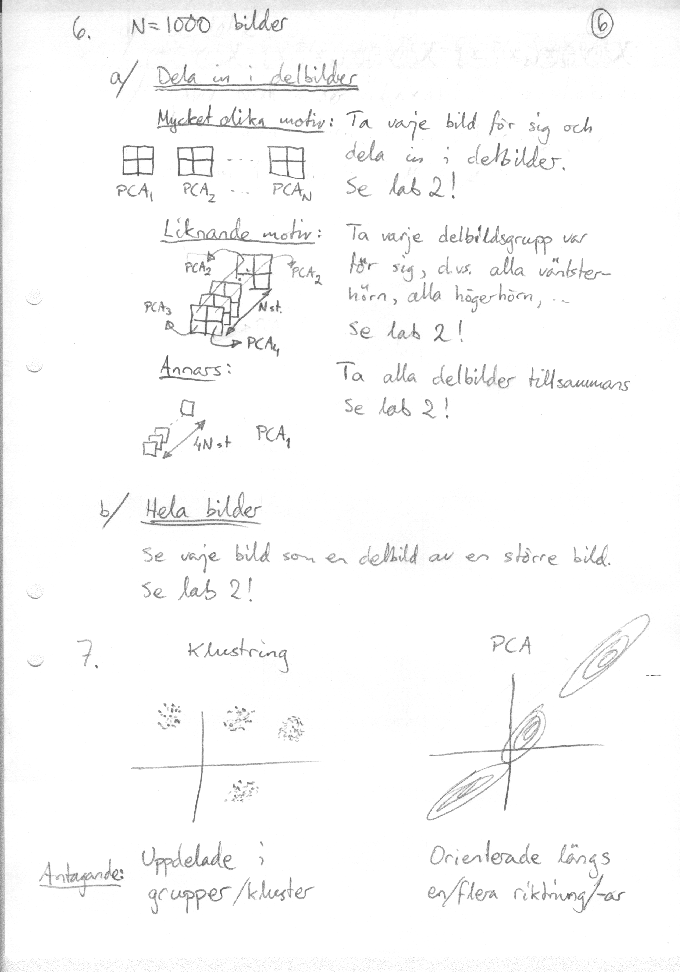 6. N=1000 bilder
6
a/ Dela in i delbilder
Mycket olika motiv: Ta varje bild för sig och
dela in i delbilder.
Se lab 2!
PCA1 PCA2 ... PCAN
Liknande motiv: Ta varje delbildsgrupp var
för sig, d.v.s. alla vänster-
hörn, alla högerhörn, ...
Se lab 2!
PCA2 PCA2
N st.
PCA3
PCA4
Annars: Ta alla delbilder tillsammans
Se lab 2!
4N st PCA1
b/ Hela bilder
Se varje bild som en delbild av en större bild.
Se lab 2!
7. Klustring PCA
Antagande: Uppdelade i
grupper/kluster
Orienterade längs
en/flera riktning/-ar